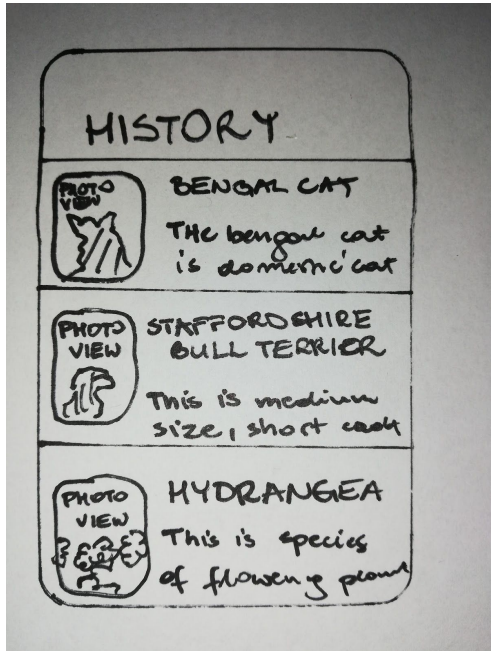 HISTORY
PHOTO
VIEW
BENGAL CAT
The bengal cat
is domestic cat
PHOTO
VIEW
STAFFORDSHIRE
BULL TERRIER
This is medium
size, short
PHOTO
VIEW
HYDRANGEA
This is species
of flowering plant